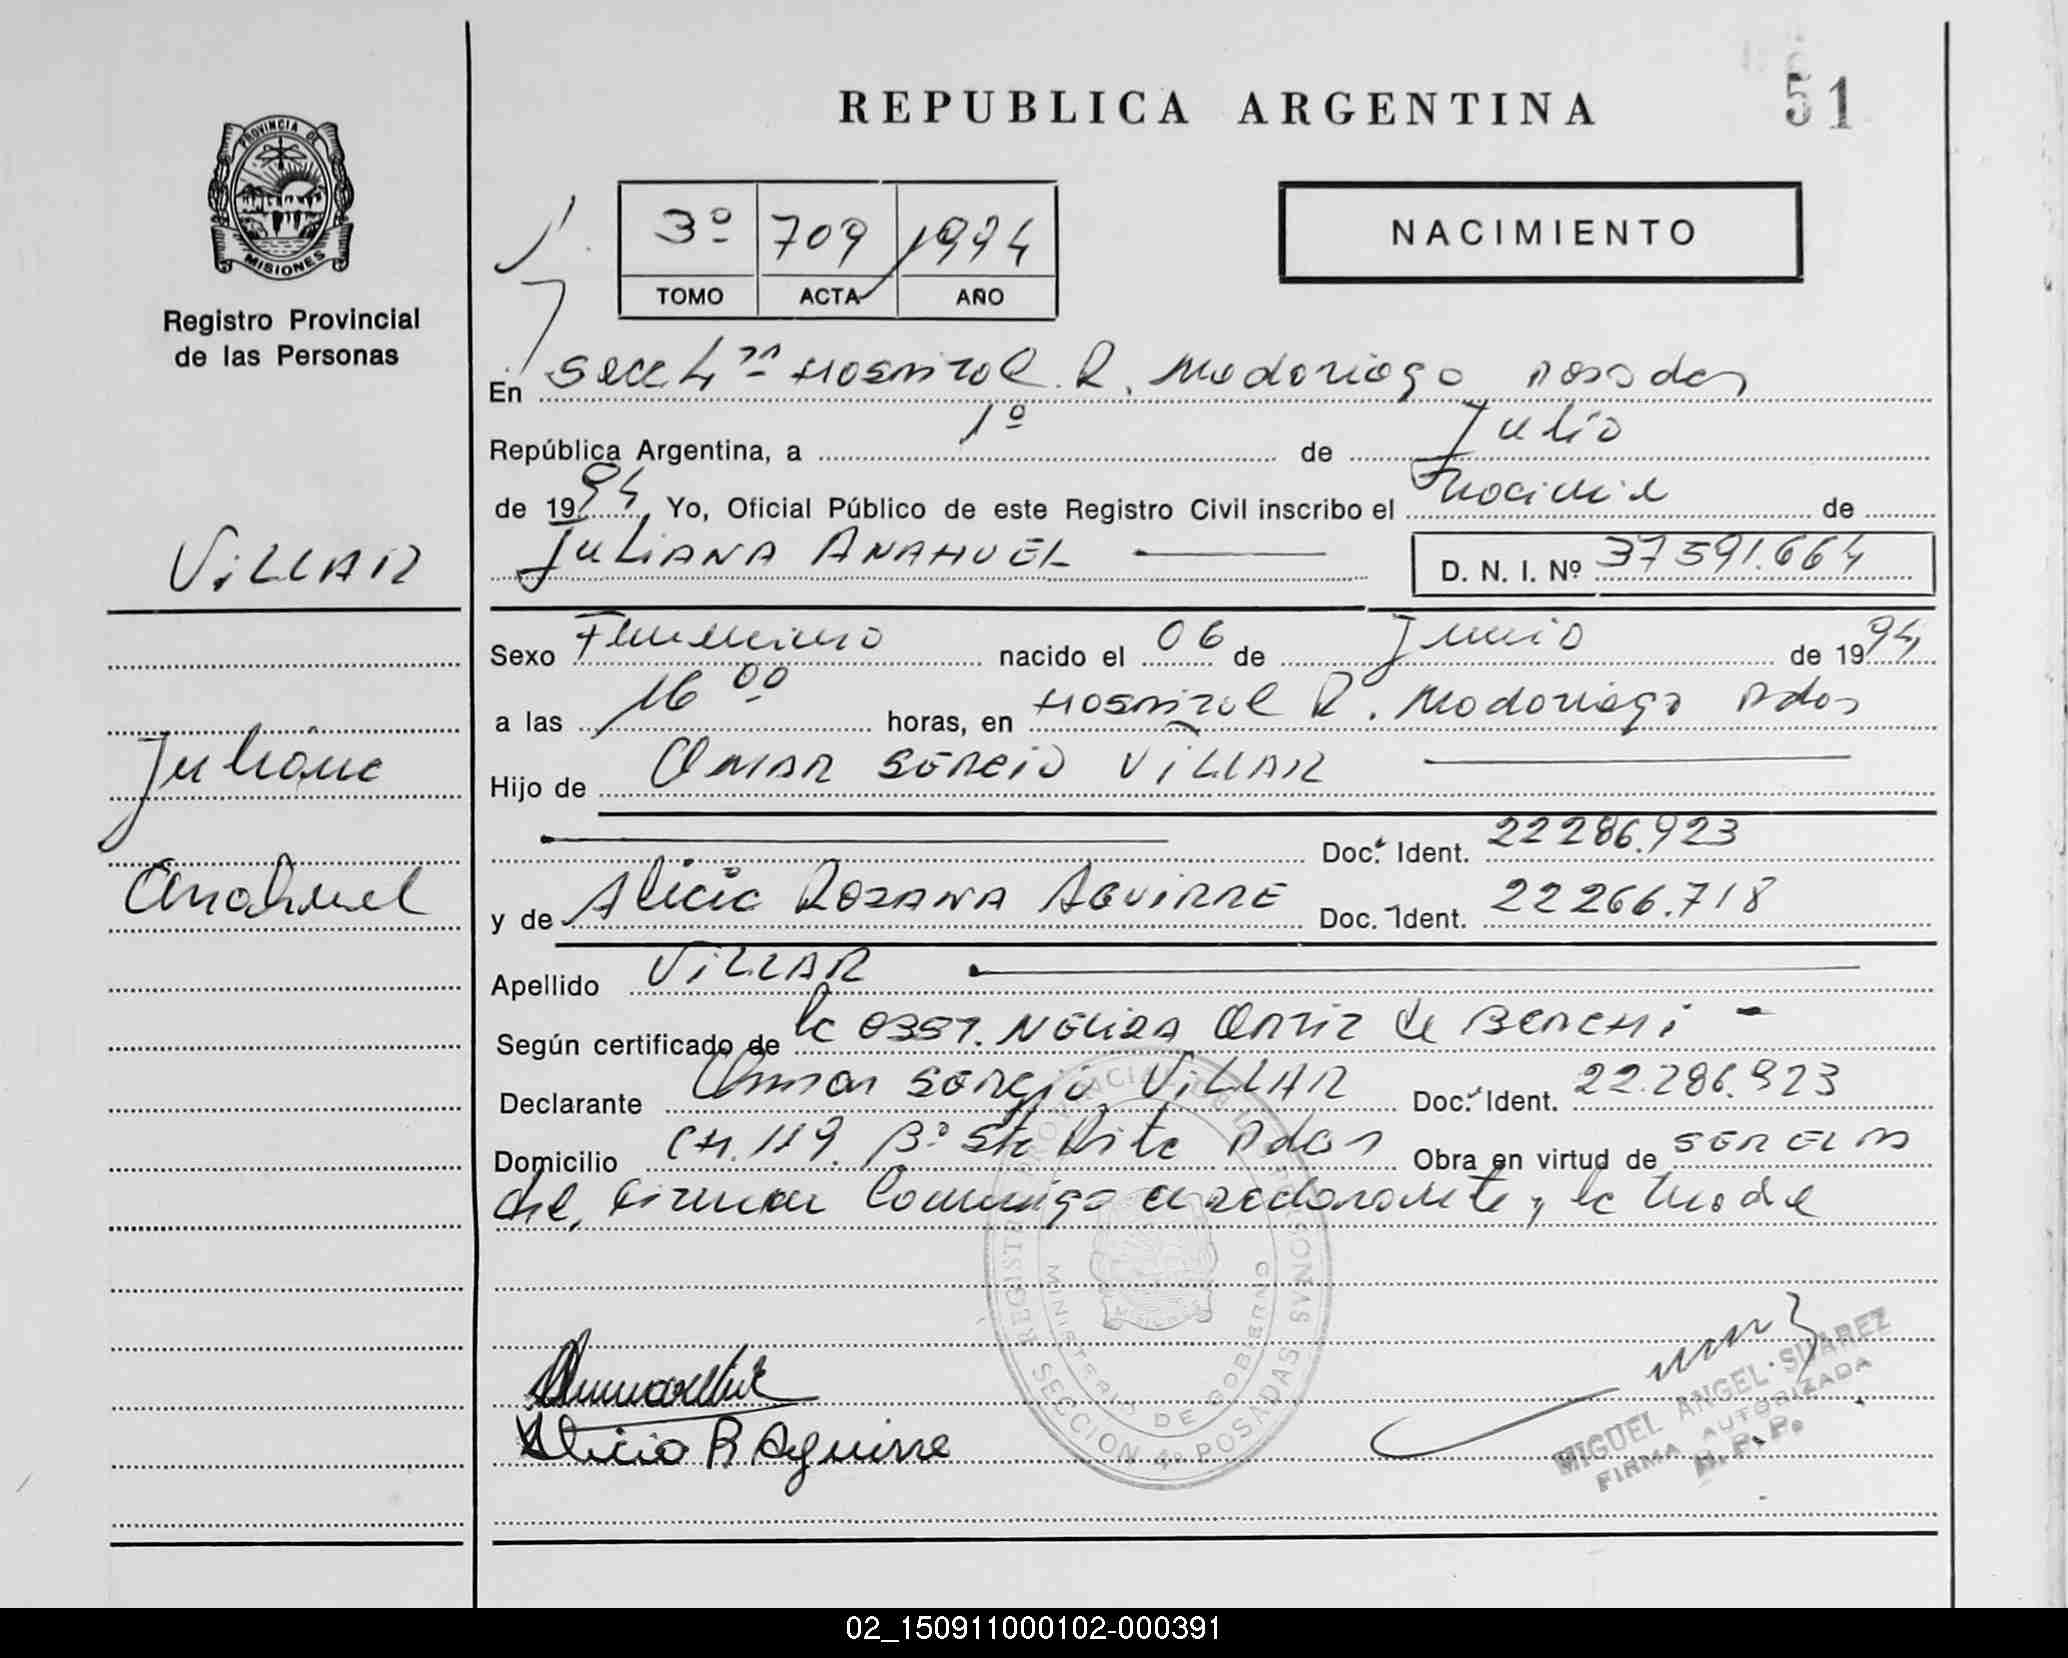 REPUBLICA ARGENTINA
51
PROVINCIA DE
MISIONES
Registro Provincial
de las Personas
3º 709 1994
TOMO ACTA AÑO
NACIMIENTO
En Secc 4ª Hospital R. Madariaga Posadas
República Argentina, a 1º de Julio
de 1994 Yo, Oficial Público de este Registro Civil inscribo el de
JULIANA ANAHUEL
D. N. I. Nº 37 591.664
VILLAR
Juliana
Anahuel
Sexo Femenino nacido el 06 de Junio de 1994
a las 16 00 horas, en Hospital R. Madariaga Pdas
Hijo de OMAR SERGIO VILLAR
Doc. Ident. 22 286.923
y de Alicia ROZANA AGUIRRE Doc. Ident. 22 266.718
Apellido VILLAR
Según certificado de la OBST. NELIDA ORTIZ de
Declarante Omar SERGIO VILLAR Doc. Ident. 22.286.923
Domicilio CH. 119. Bº Sta Rita Pdas Obra en virtud de SER EL P
del, Firman Conmigo el declarante y la Madre
REGISTRO PROVINCIAL DE LAS PERSONAS
MINISTERIO DE GOBIERNO
SECCION 4º POSADAS
Alicia R Aguirre
MIGUEL ANGEL SUAREZ
FIRMA AUTORIZADA
R. P. P.
02_150911000102-000391